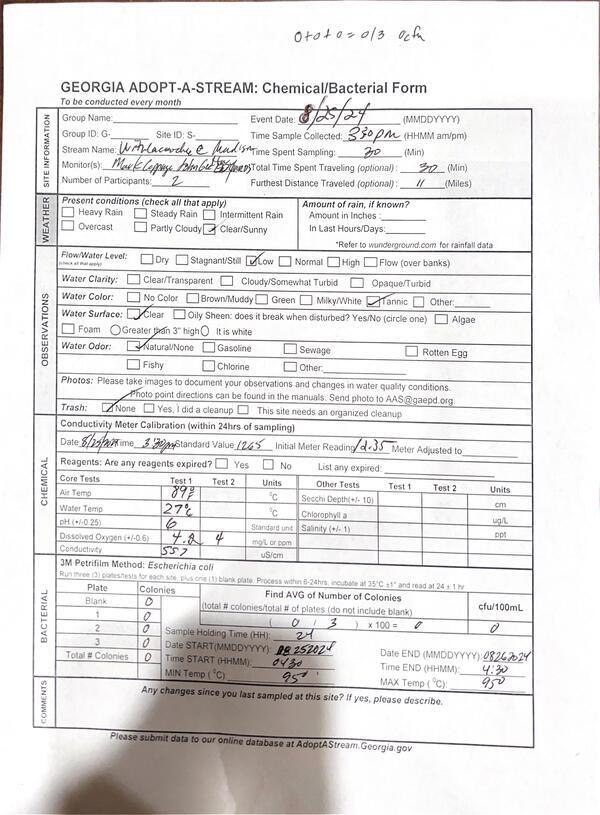 0+0+0 = 0/3 0cfu
GEORGIA ADOPT-A-STREAM: Chemical/Bacterial Form
To be conducted every month
SITE INFORMATION
Group Name: Event Date: 8/25/24 (MMDDYYYY)
Group ID: G- Site ID: S- Time Sample Collected: 330pm (HHMM am/pm)
Stream Name: Withlacoochee @ Madison Time Spent Sampling: 30 (Min)
Monitor(s): Total Time Spent Traveling (optional): 30 (Min)
Number of Participants: 2 Furthest Distance Traveled (optional): 11 (Miles)
WEATHER
Present conditions (check all that apply) Amount of rain, if known?
Heavy Rain Steady Rain Intermittent Rain Amount in Inches:
Overcast Partly Cloudy Clear/Sunny In Last Hours/Days:
*Refer to wunderground.com for rainfall data
OBSERVATIONS
Flow/Water Level: Dry Stagnant/Still Low Normal High Flow (over banks)
(check all that apply)
Water Clarity: Clear/Transparent Cloudy/Somewhat Turbid Opaque/Turbid
Water Color: No Color Brown/Muddy Green Milky/White Tannic Other:
Water Surface: Clear Oily Sheen: does it break when disturbed? Yes/No (circle one) Algae
Foam Greater than 3" high It is white
Water Odor: Natural/None Gasoline Sewage Rotten Egg
Fishy Chlorine Other:
Photos: Please take images to document your observations and changes in water quality conditions.
Photo point directions can be found in the manuals. Send photo to AAS@gaepd.org.
Trash: None Yes, I did a cleanup This site needs an organized cleanup
CHEMICAL
Conductivity Meter Calibration (within 24hrs of sampling)
Date Time 3:30pm Standard Value 1265 Initial Meter Reading 12.35 Meter Adjusted to
Reagents: Are any reagents expired? Yes No List any expired:
Core Tests Test 1 Test 2 Units Other Tests Test 1 Test 2 Units
Air Temp 89° °C Secchi Depth(+/- 10) cm
Water Temp 27° °C Chlorophyll a ug/L
pH (+/-0.25) 6 Standard unit Salinity (+/- 1) ppt
Dissolved Oxygen (+/-0.6) 4.2 4 mg/L or ppm
Conductivity 557 uS/cm
BACTERIAL
3M Petrifilm Method: Escherichia coli
Run three (3) plates/tests for each site, plus one (1) blank plate. Process within 6-24hrs, incubate at 35°C ±1° and read at 24 ± 1 hr
Plate Colonies Find AVG of Number of Colonies
Blank 0 (total # colonies/total # of plates (do not include blank) cfu/100mL
1 0 ( 0 / 3 ) x 100 = 0 0
2 0 Sample Holding Time (HH): 24
3 0 Date START(MMDDYYYY): 08252024 Date END (MMDDYYYY): 08262024
Total # Colonies 0 Time START (HHMM): 0430 Time END (HHMM): 4:30
MIN Temp (°C) 95° MAX Temp (°C): 95°
COMMENTS
Any changes since you last sampled at this site? If yes, please describe.
Please submit data to our online database at AdoptAStream.Georgia.gov